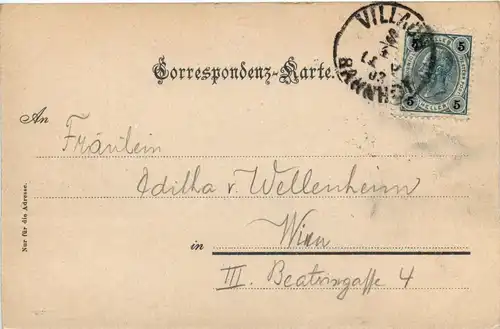 VILLACH
BAHNHOF
5 HELLER 5
Correspondenz-Karte.
An
Fräulein
Editha v. Wellenheim
in Wien
III. Beatrixgasse 4
Nur für die Adresse.